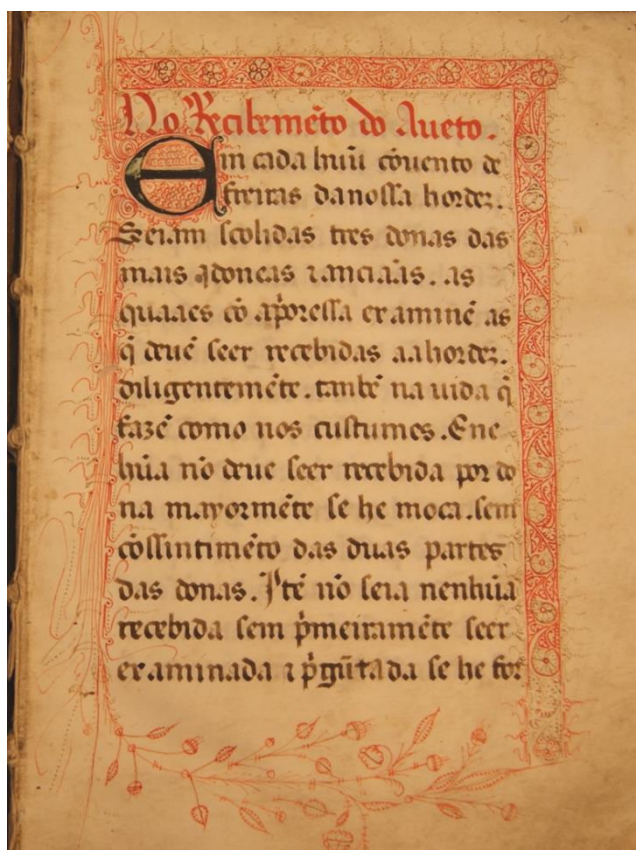 No Recibemẽto do Aueto.
Em cada hũu cõuento de
freiras da nossa hordẽ.
Seiam scolidas tres donas das
mais ydoneas ⁊ anciaãs. as
quaaes cõ a p̃oressa examinẽ as
q̃ deuẽ seer recebidas aa hordẽ.
diligentemẽte. tanbẽ na uida q̃
fazẽ como nos custumes. E ne
hũa nõ deue seer recebida por do
na mayormẽte se he moca. sem
cõssintimẽto das duas partes
das donas. Jtẽ nõ seia nenhũa
recebida sem p̃meiramẽte seer
examinada ⁊ p̃gũtada se he for